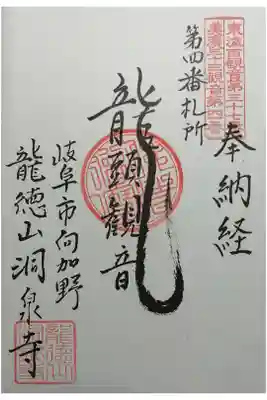 東海百観音第三十七番
美濃三十三観音第四番
奉納経
第四番札所
龍頭観音
岐阜市向加野
龍徳山洞泉寺